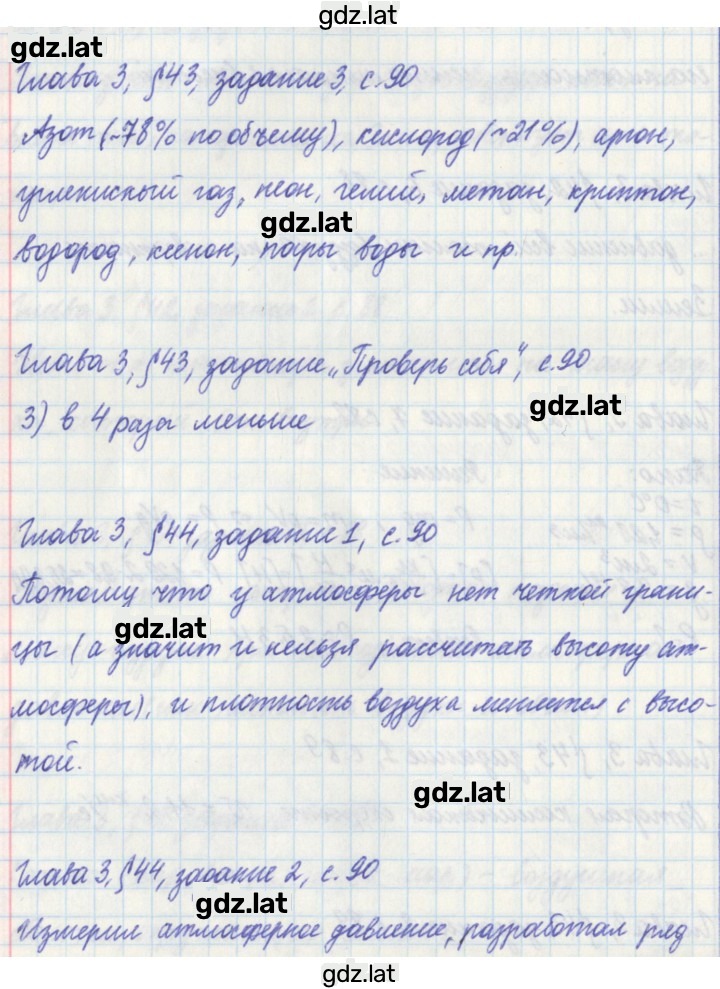 gdz.lat
gdz.lat
Глава 3, §43, задание 3, с.90
Азот (~78% по объему), кислород (~21%), аргон,
углекислый газ, неон, гелий, метан, криптон,
gdz.lat
водород, ксенон, пары воды и пр.
Глава 3, §43, задание „Проверь себя", с.90
gdz.lat
3) в 4 раза меньше
Глава 3, §44, задание 1, с.90
Потому что у атмосферы нет четкой грани-
gdz.lat
цы (а значит и нельзя рассчитать высоту ат-
мосферы), и плотность воздуха меняется с высо-
той.
gdz.lat
Глава 3, §44, задание 2, с.90
gdz.lat
Измерил атмосферное давление, разработал ряд
gdz.lat